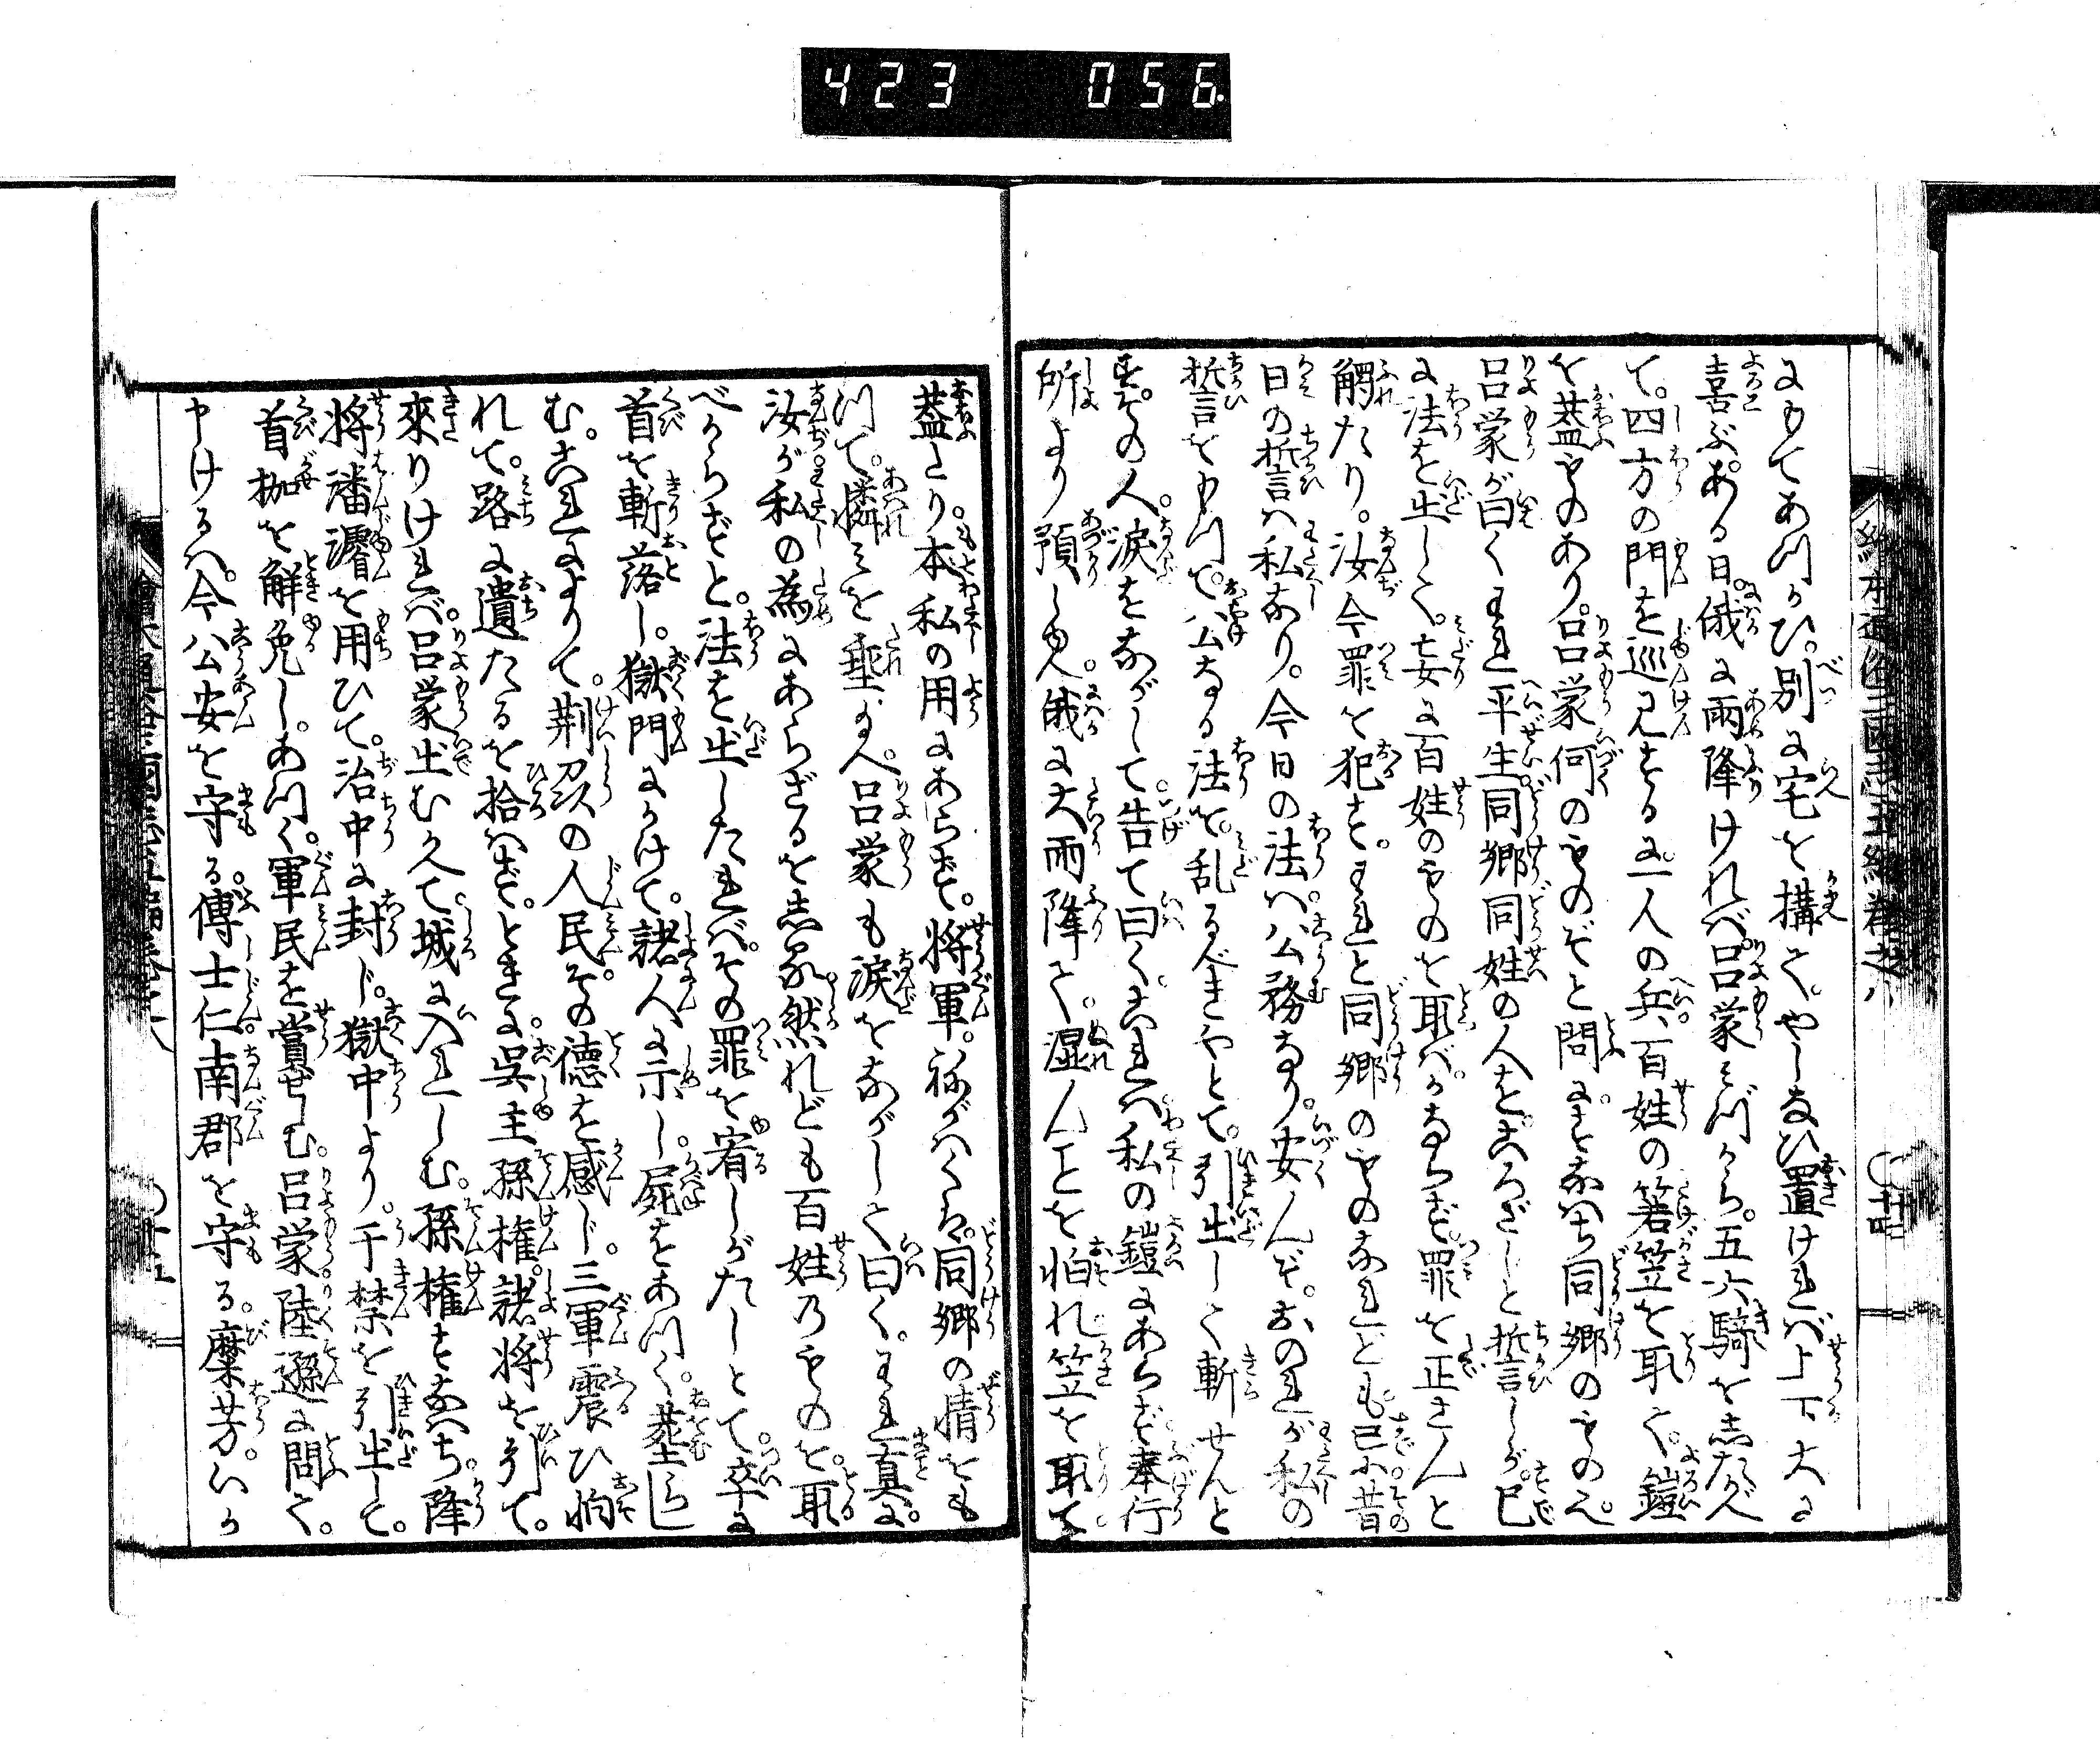 423 056
繪本通俗三國志五編卷之八
〇廿四
にもてあつかひ。別に宅を構て。やしなひ置ければ上下大に
喜ぶ。ある日。俄に雨降ければ。呂蒙みづから。五六騎をしたがへ
て。四方の門を巡見するに。一人の兵。百姓の箬笠を取て。鎧
を蓋ものあり。呂蒙何ものぞと問に。すなはち同郷のもの也。
呂蒙が曰くわれ平生。同郷同姓の人をころさじと誓しが。已
に法を出して。妄に百姓のものを取べからず。罪を正さんと
觸たり。汝今罪を犯す。われと同郷のものなれども已に。昔
日の誓は私なり。今日の法は。公務なり。安んぞ。おのれが私の
誓をもつて。公なる法を。乱るべきやとて。引出して斬せんと
す。その人。涙をながして。告て曰く。これは。私の鎧にあらず。奉行
所より預しゆへ。俄に大雨降て。濕んことを怕れ笠を取て
蓋たり。本私の用にあらず。将軍。ねがはくは。同郷の情をも
つて。憐みを垂玉へ。呂蒙も涙をながして曰く。われ真に。
汝が私の為にあらざるをしる。然れども百姓のものを。取
べからずと。法を出したれば。その罪を宥しがたしとて。卒に
首を斬落し。獄門にかけて。諸人に示し。屍をあつく。葬らし
む。これによりて。荊州の人民。その德を感じ。三軍震ひ怕
れて。路に遺たるを拾はず。ときに。呉主孫權。諸将を引て。
來りければ。呂蒙出むかへて。城に入れしむ。孫權すなはち。降
将潘濬を用ひて。治中に封じ。獄中より。于禁を引出して。
首枷を解免し。あつく軍民を賞せしむ。呂蒙陸遜に問て。
申けるは。今公安を守る。傅士仁。南郡を守る。糜芳。いか